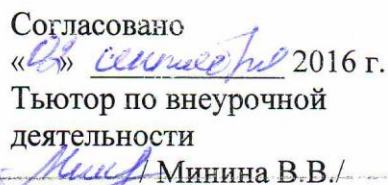 Согласовано
«02» сентября 2016 г.
Тьютор по внеурочной
деятельности
/ Минина В.В./